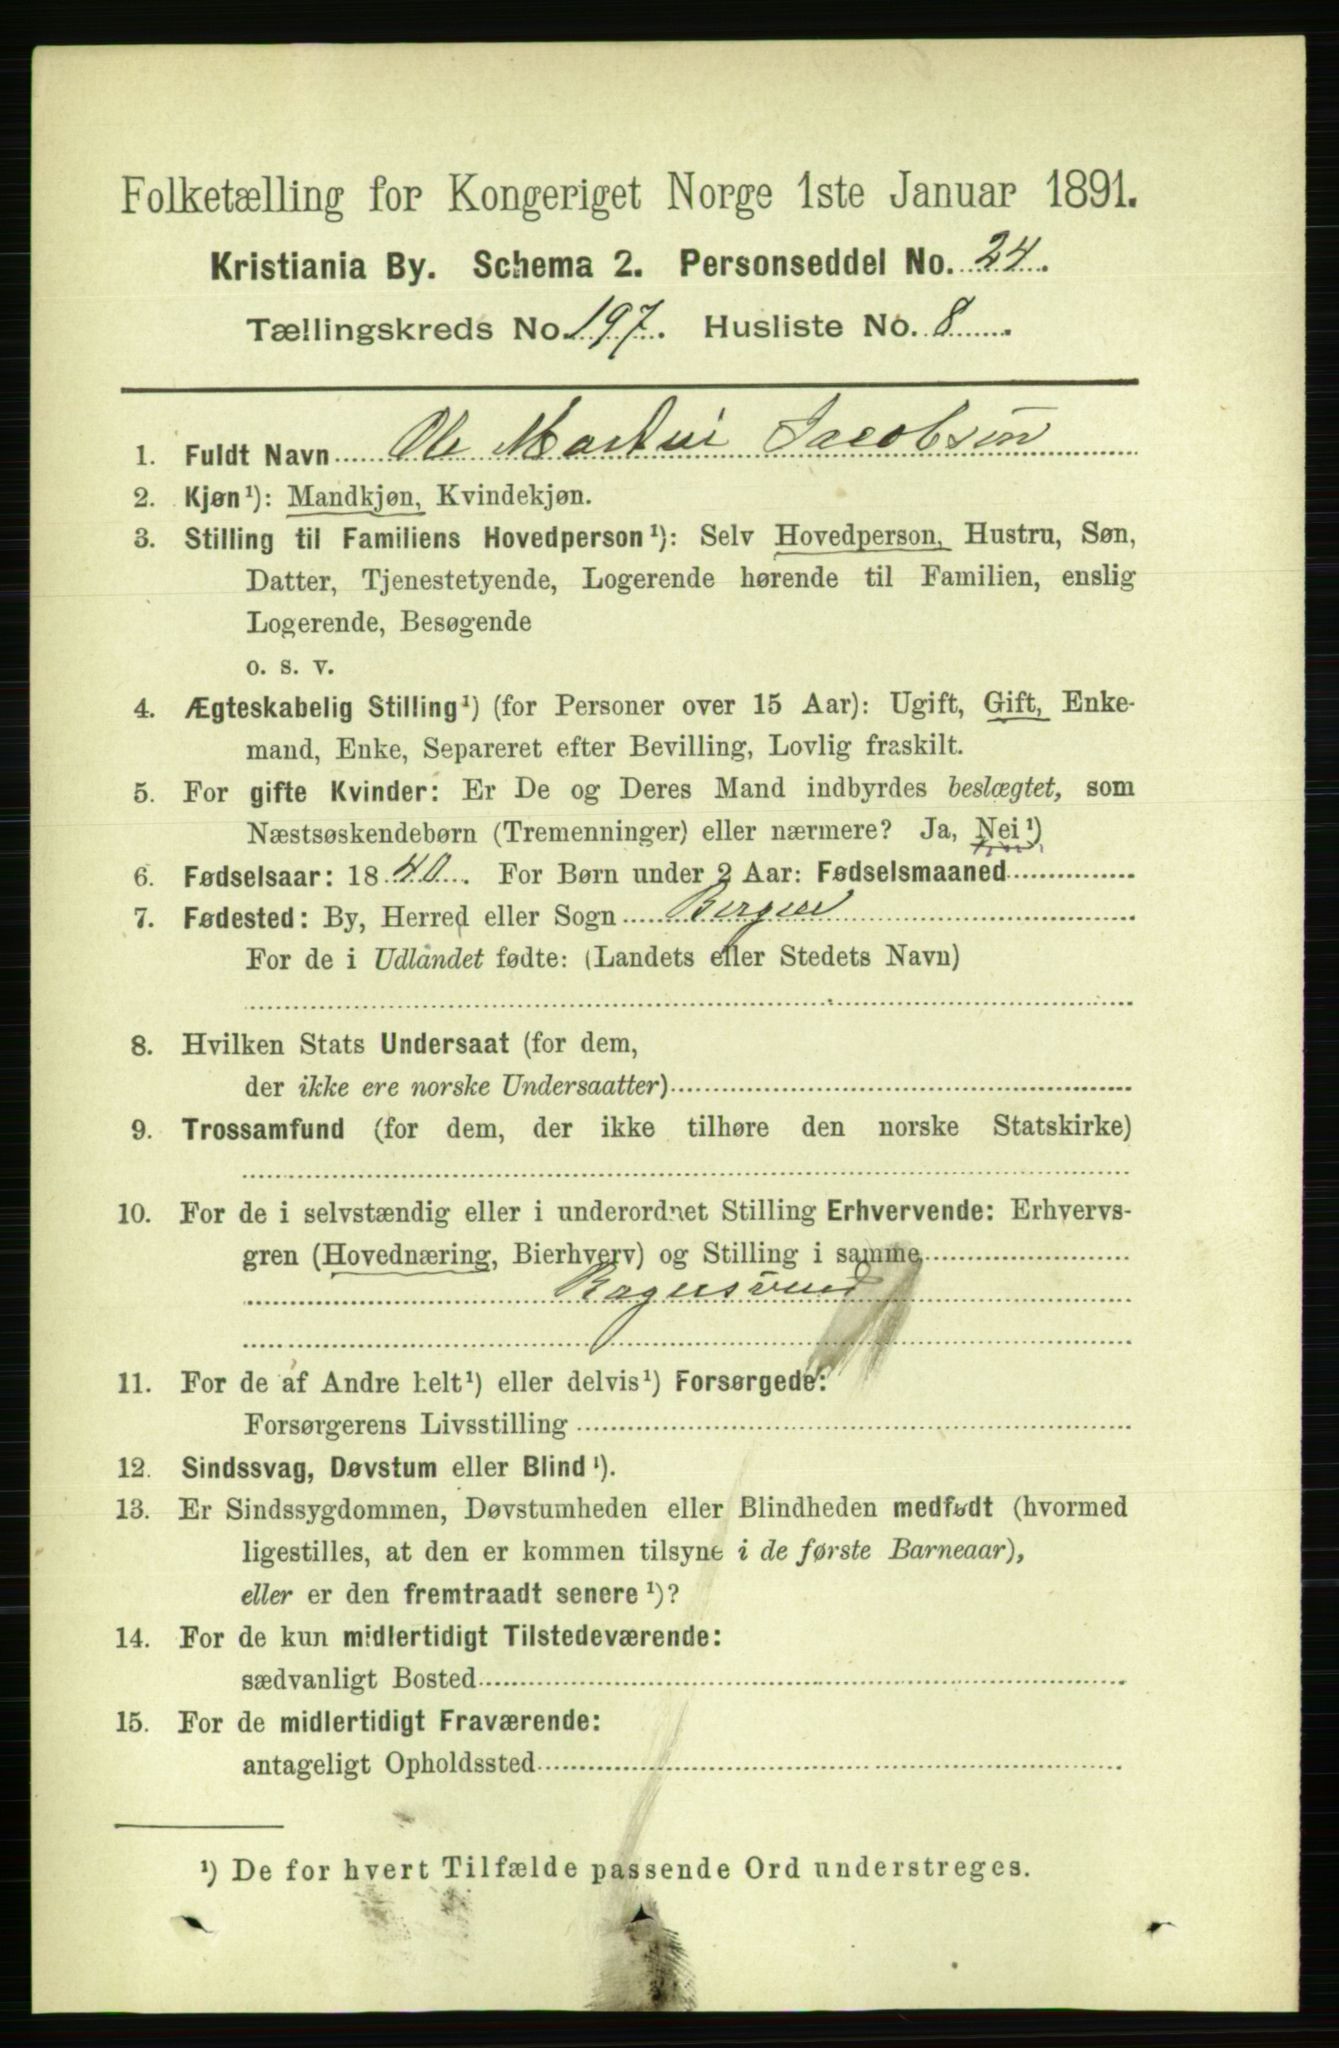 Folketælling for Kongeriget Norge 1ste Januar 1891.
Kristiania By. Schema 2. Personseddel No. 24.
Tællingskreds No. 197. Husliste No. 8
1. Fuldt Navn Ole Martin Jacobsen
2. Kjøn¹): Mandkjøn, Kvindekjøn.
3. Stilling til Familiens Hovedperson¹): Selv Hovedperson, Hustru, Søn,
Datter, Tjenestetyende, Logerende hørende til Familien, enslig
Logerende, Besøgende
o. s. v.
4. Ægteskabelig Stilling¹) (for Personer over 15 Aar): Ugift, Gift, Enke-
mand, Enke, Separeret efter Bevilling, Lovlig fraskilt.
5. For gifte Kvinder: Er De og Deres Mand indbyrdes beslægtet, som
Næstsøskendebørn (Tremenninger) eller nærmere? Ja, Nei¹)
6. Fødselsaar: 1840. For Børn under 2 Aar: Fødselsmaaned
7. Fødested: By, Herred eller Sogn Bergen
For de i Udlandet fødte: (Landets eller Stedets Navn)
8. Hvilken Stats Undersaat (for dem,
der ikke ere norske Undersaatter)
9. Trossamfund (for dem, der ikke tilhøre den norske Statskirke)
10. For de i selvstændig eller i underordnet Stilling Erhvervende: Erhvervs-
gren (Hovednæring, Bierhverv) og Stilling i samme
11. For de af Andre helt¹) eller delvis¹) Forsørgede:
Forsørgerens Livsstilling
12. Sindssvag, Døvstum eller Blind¹).
13. Er Sindssygdommen, Døvstumheden eller Blindheden medfødt (hvormed
ligestilles, at den er kommen tilsyne i de første Barneaar),
eller er den fremtraadt senere¹)?
14. For de kun midlertidigt Tilstedeværende:
sædvanligt Bosted
15. For de midlertidigt Fraværende:
antageligt Opholdssted
¹) De for hvert Tilfælde passende Ord understreges.